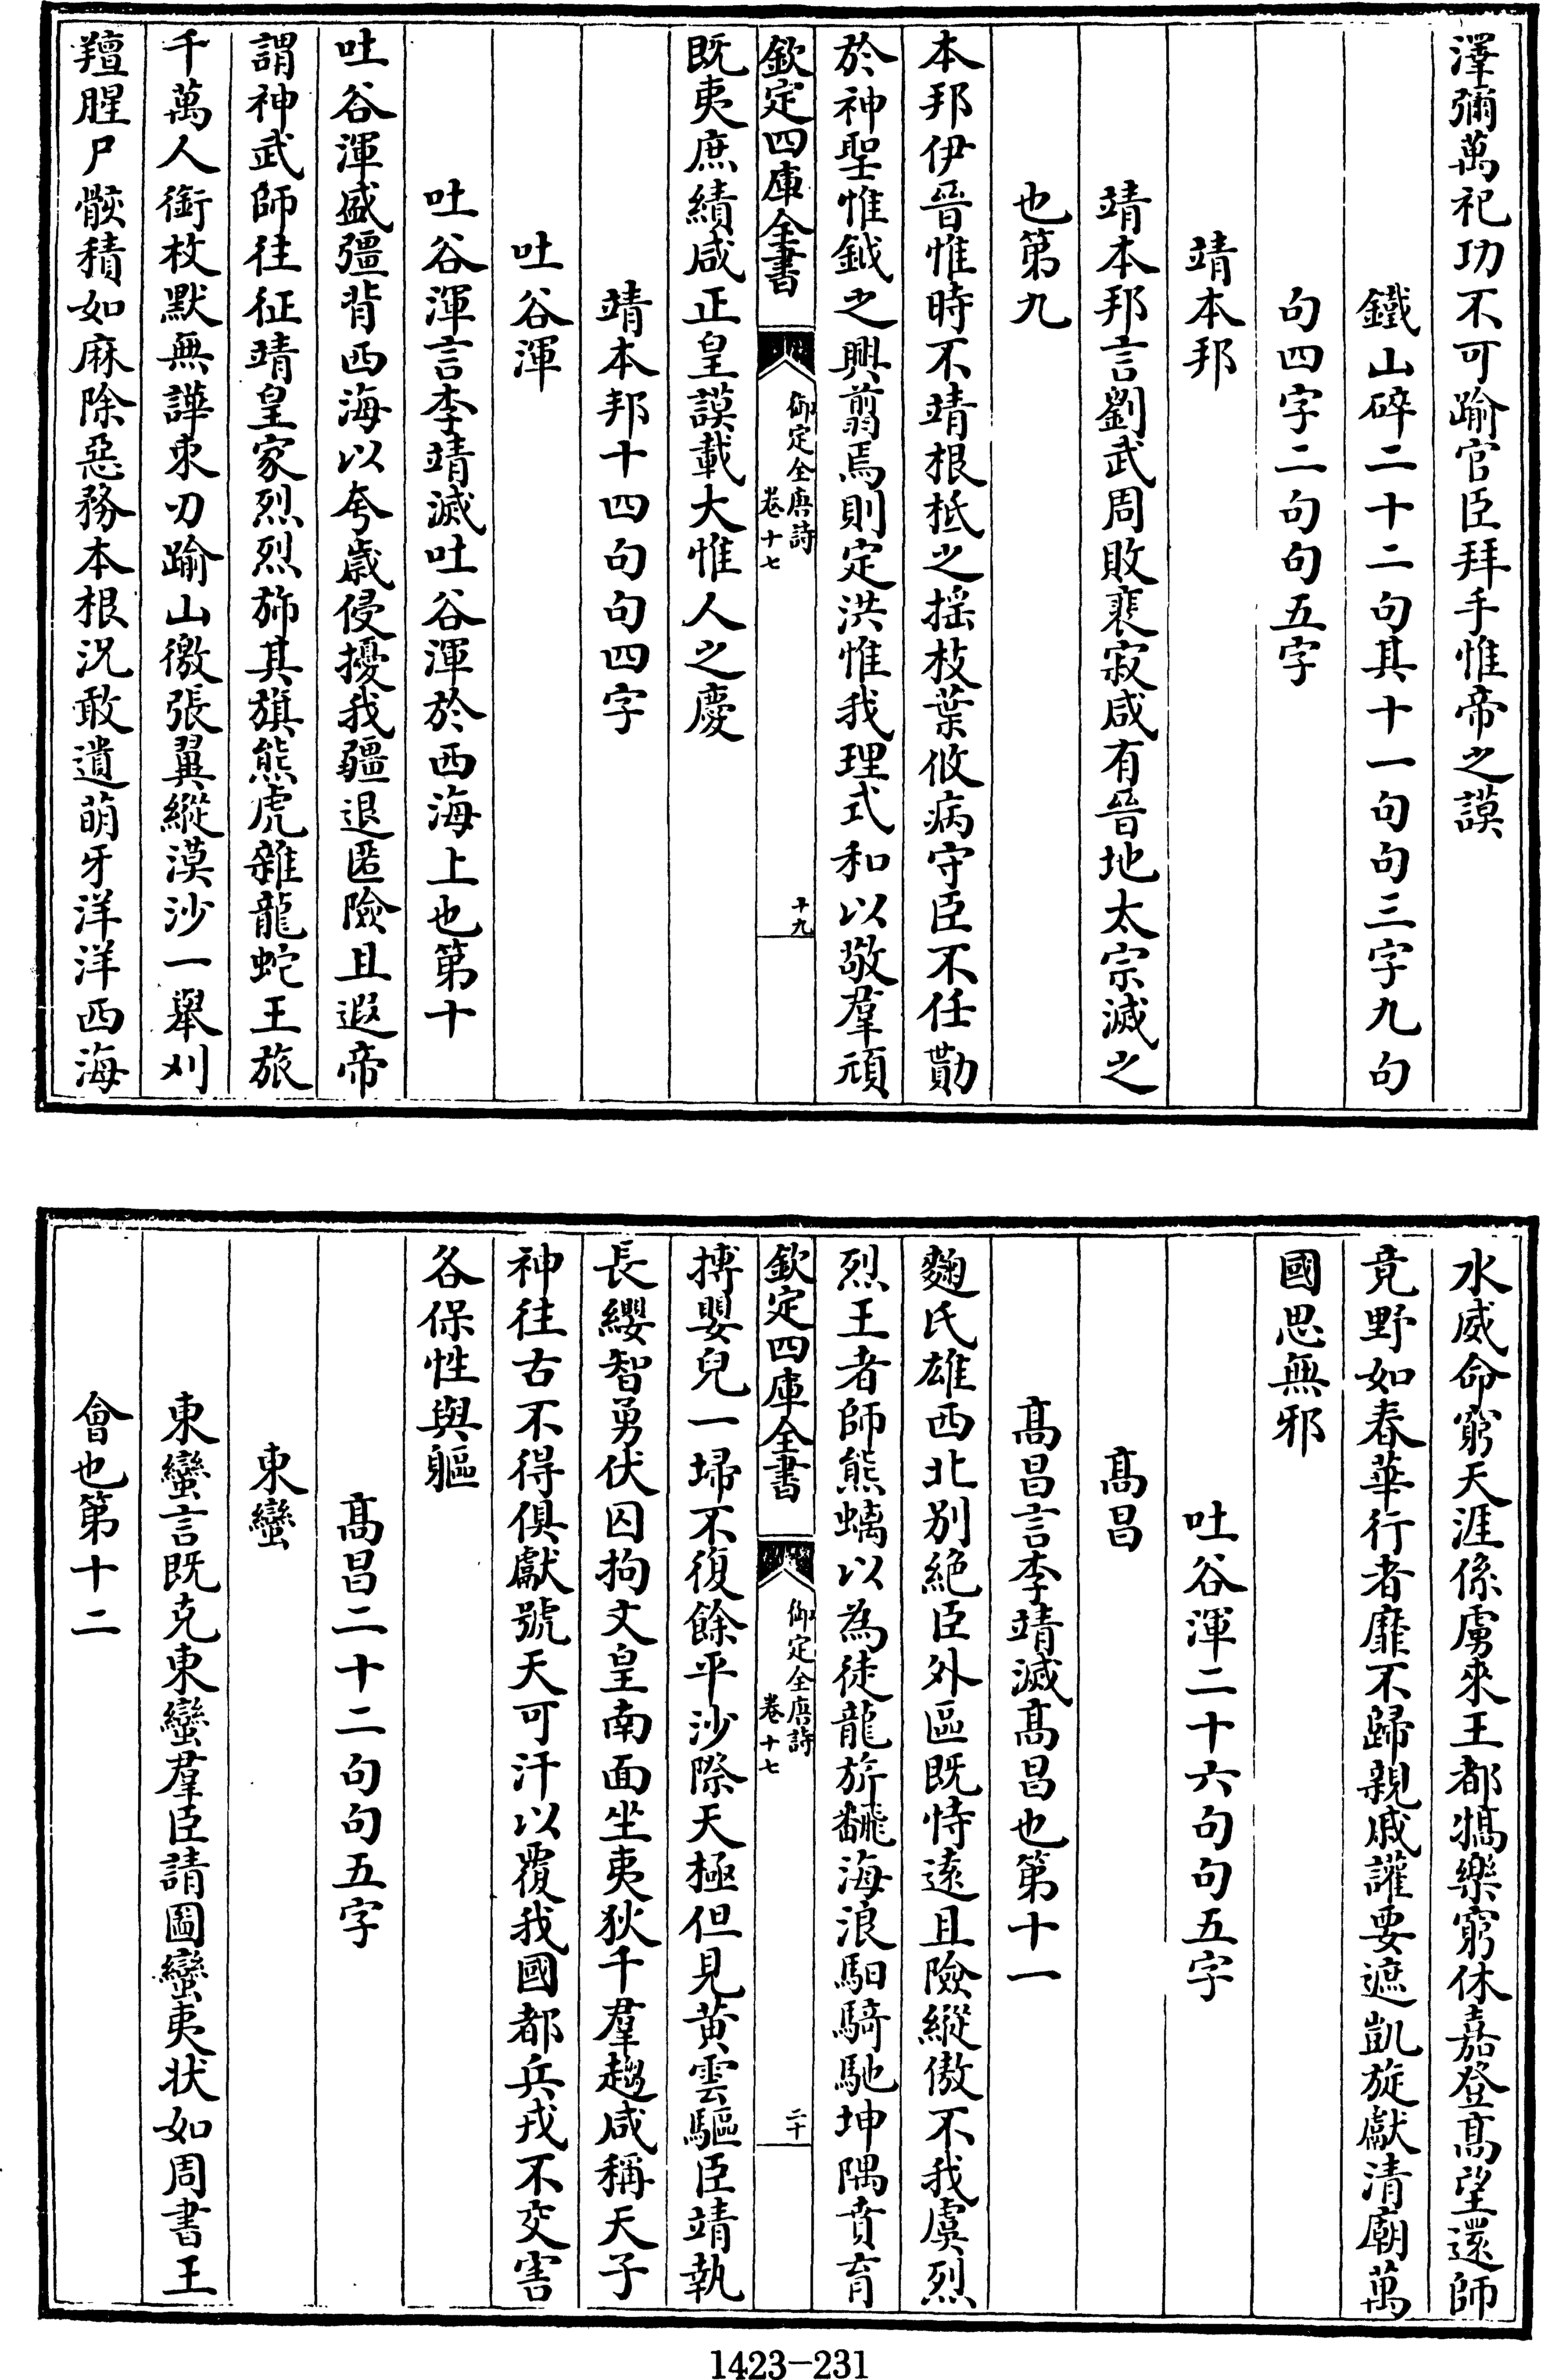 澤彌萬祀功不可踰官臣拜手惟帝之謨
鐵山碎二十二句其十一句句三字九句
句四字二句句五字
靖本邦
靖本邦言劉武周敗裴寂咸有晉地太宗滅之
也第九
本邦伊晉惟時不靖根柢之揺枝葉攸病守臣不任勩
於神聖惟鉞之興翦焉則定洪惟我理式和以敬羣頑
欽定四庫全書
御定全唐詩
卷十七
十九
既夷庶績咸正皇謨載大惟人之慶
靖本邦十四句句四字
吐谷渾
吐谷渾言李靖滅吐谷渾於西海上也第十
吐谷渾盛彊背西海以夸歲侵擾我疆退匿險且遐帝
謂神武師往征靖皇家烈烈斾其旗熊虎雜龍蛇王旅
千萬人銜枚默無譁束刃踰山徼張翼縱漠沙一舉刈
羶腥尸骸積如麻除惡務本根況敢遺萌牙洋洋西海
水威命窮天涯係虜來王都犒樂窮休嘉登髙望還師
竟野如春華行者靡不歸親戚讙要遮凱旋獻清廟萬
國思無邪
吐谷渾二十六句句五字
髙昌
髙昌言李靖滅髙昌也第十一
麴氏雄西北别絶臣外區既恃遠且險縱傲不我虞烈
烈王者師熊螭以為徒龍旂翻海浪馹騎馳坤隅賁育
欽定四庫全書
御定全唐詩
卷十七
二十
搏嬰兒一埽不復餘平沙際天極但見黄雲驅臣靖執
長纓智勇伏囚拘文皇南面坐夷狄千羣趨咸稱天子
神往古不得俱獻號天可汗以覆我國都兵戎不交害
各保性與軀
髙昌二十二句句五字
東蠻
東蠻言既克東蠻羣臣請圖蠻夷状如周書王
會也第十二
1423-231